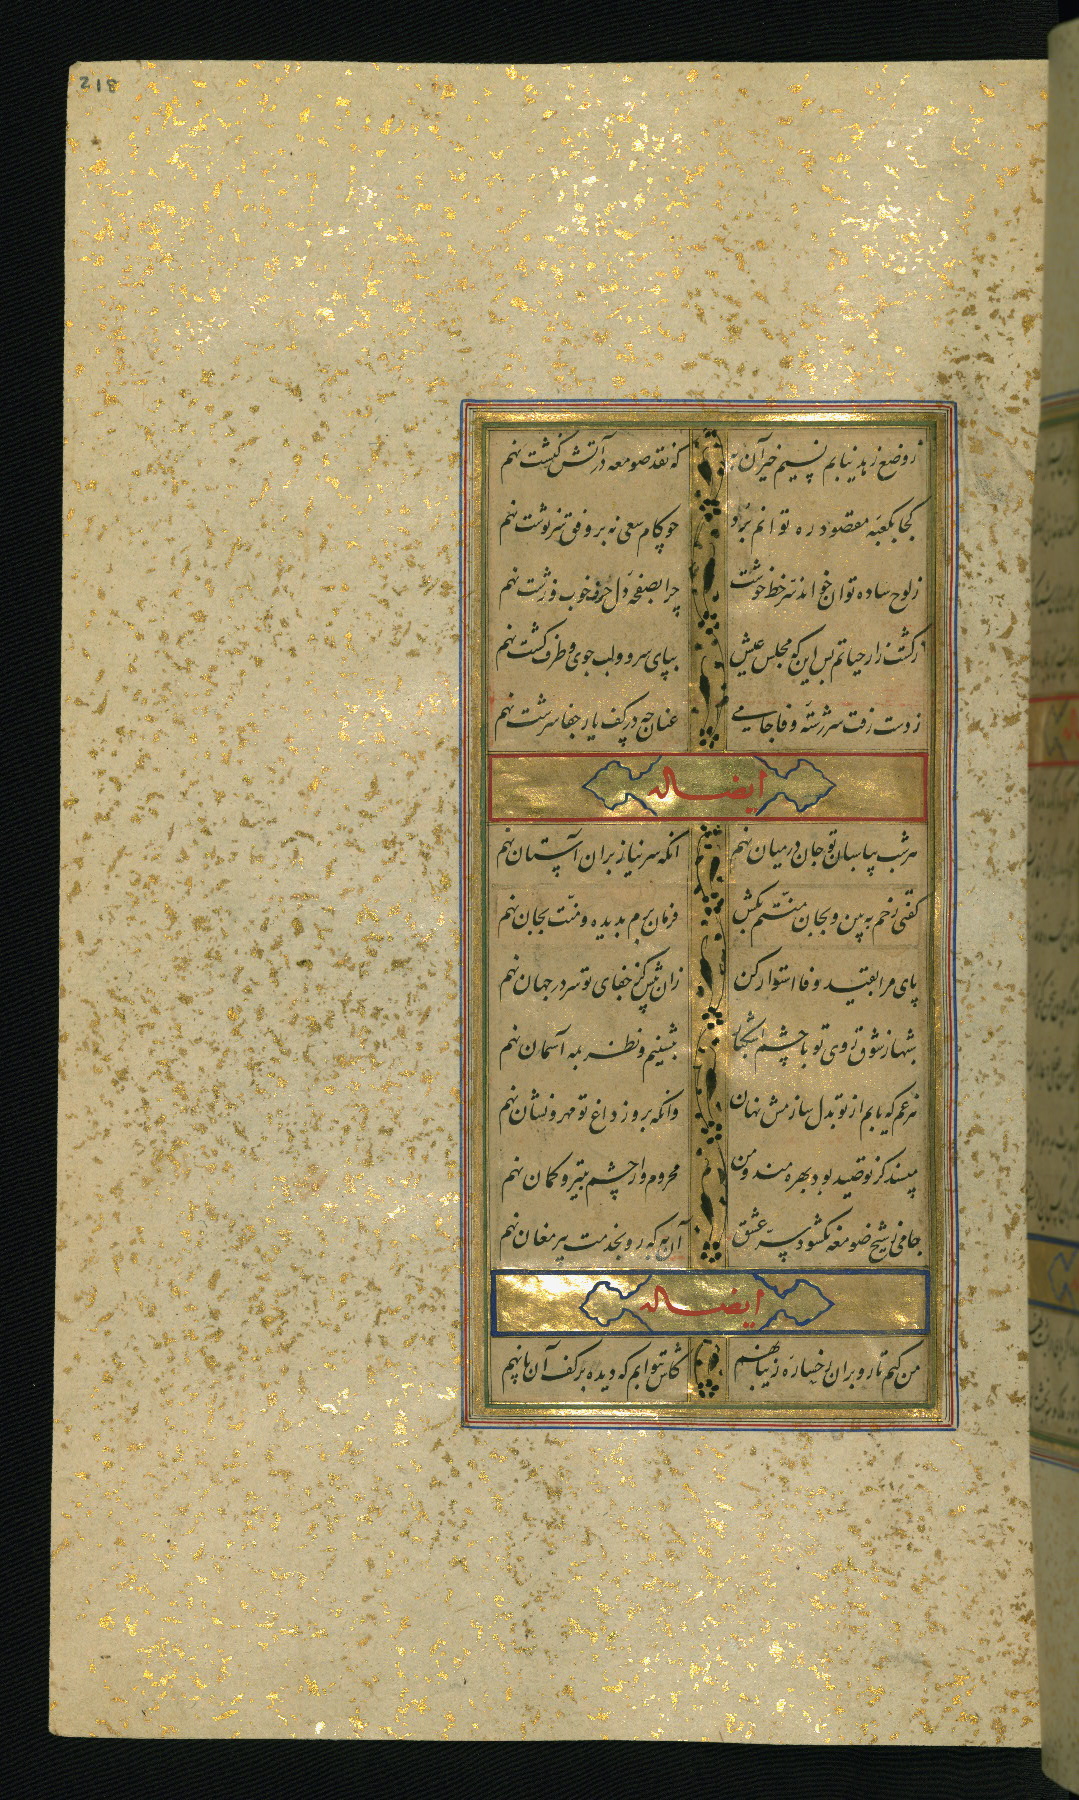 218
ز وضع زهد نیابم نسیم خیر آن به که نقد صومعه در آتش کنشت نهم
کجا بکعبه مقصود ره توانم برد چو کام سعی نه بر وفق سرنوشت نهم
ز لوح ساده توان خواند سر خط خوشت چرا بصفحه دل حرف خوب و زشت نهم
ز کشت زار حیاتم بس این که مجلس عیش بپای سرو و لب جوی و طرف کشت نهم
ز دست رفت سر رشته وفا جامی عنان چه در کف یار جفا سرشت نهم
ایضا له
هر شب بپاسبان تو جان در میان نهم آنکه سر نیاز بران آستان نهم
کفتی رخم به بین و بجان منتم بکش فرمان برم بدیده و منت بجان نهم
پای مرا بقید وفا استوار کن زان پیش کز جفای تو سر در جهان نهم
شبها ز شوق روی تو با چشم اشکبار بنشینم و نظر بمه آسمان نهم
هر غم که یابم از تو بدل سازمش نهان وانکه برو ز داغ تو مهر و نشان نهم
مپسند کز تو صید بود بهره مند و من محروم وار چشم بتیر و کمان نهم
جامی ز شیخ صومعه نکشود سر عشق آن به که رو بخدمت پیر مغان نهم
ایضا له
من کیم تا رو بران رخساره زیبا نهم کاش بتوانم که دیده بر کف آن پا نهم